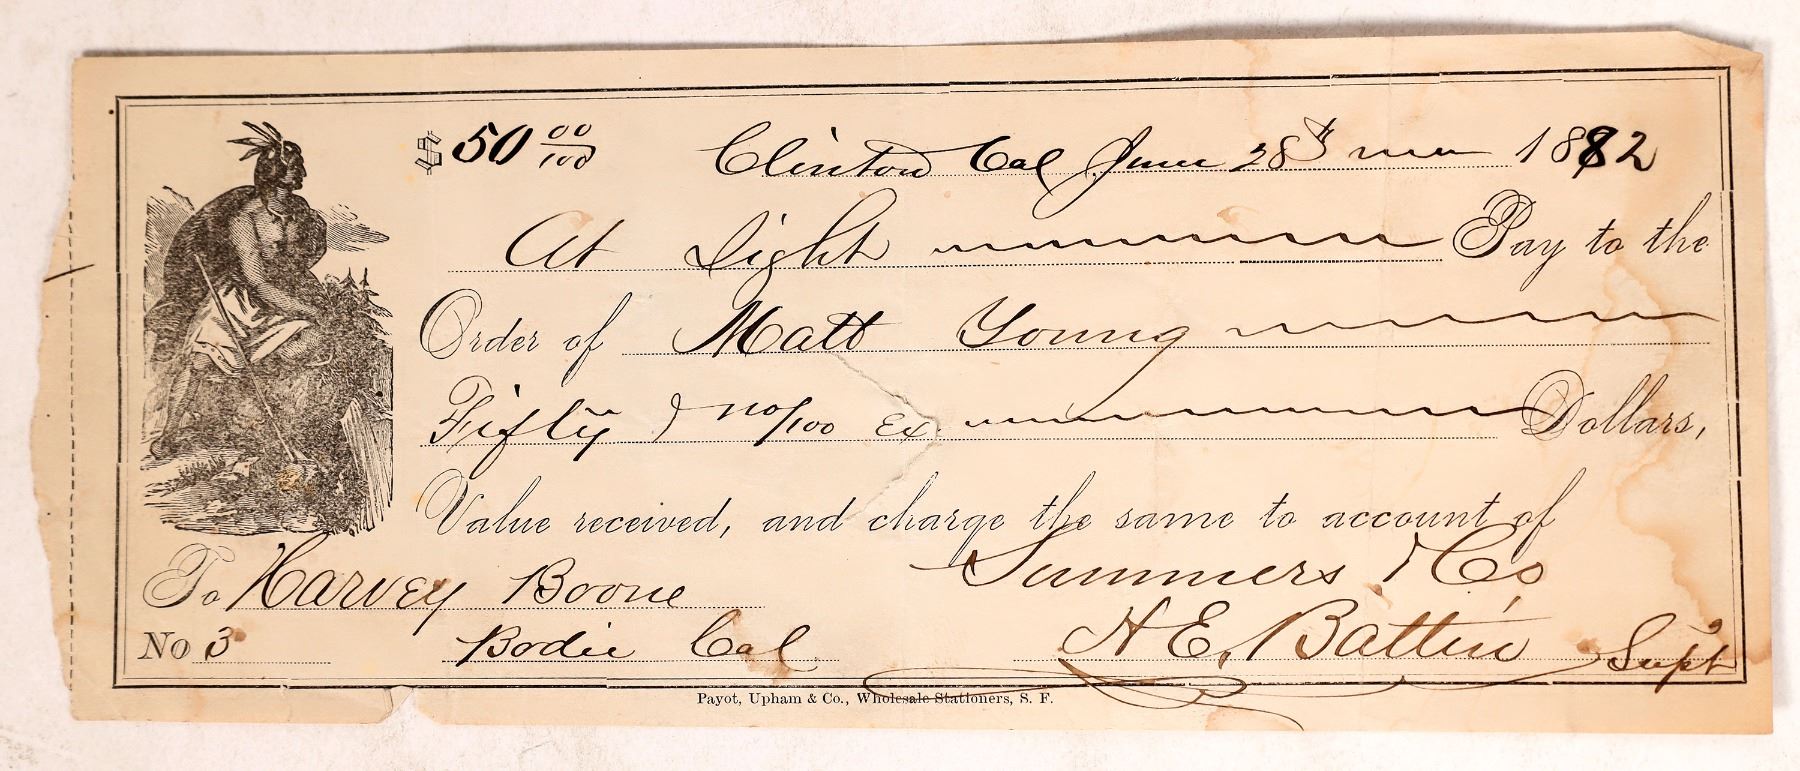 $ 50 00/100 Clinton Cal June 28th 1882
At Sight Pay to the
Order of Matt Young
Fifty & no/100 Ex Dollars,
Value received, and charge the same to account of
Summers & Co
To Harvey Boone
H E. Battin Supt
No 3 Bodie Cal
Payot, Upham & Co., Wholesale Stationers, S. F.